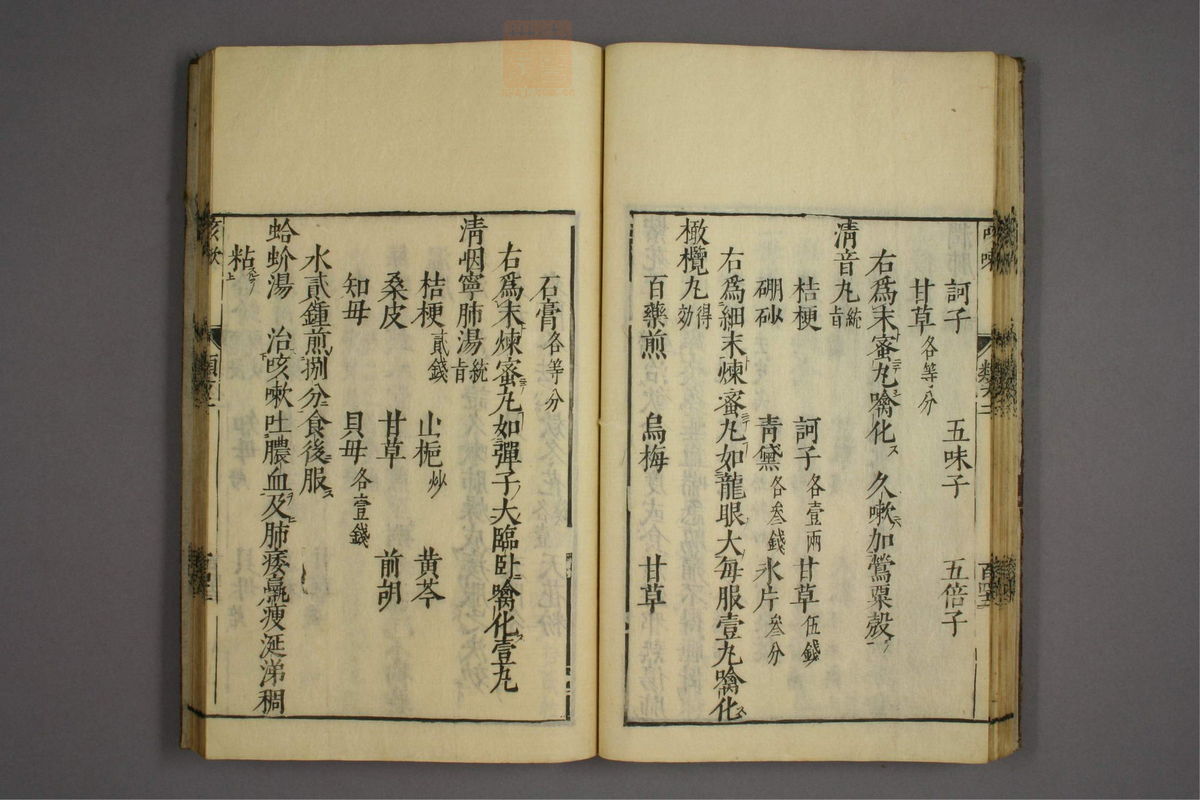 訶子　五味子　五倍子
甘草各等分
右爲末蜜丸噙化　久嗽加鶯粟殻
清音丸統旨
桔梗　訶子各壹兩　甘草伍錢
硼砂　青黛各叁錢　氷片叁分
右爲細末煉蜜丸如龍眼大每服壹丸噙化
橄欖丸得効
百藥煎　烏梅　甘草
石膏各等分
右爲末煉蜜丸如彈子大臨卧噙化壹丸
清烟寧肺湯統旨
桔梗貳錢　山梔炒　黄芩
桑皮　甘草　前胡
知母　貝母各壹錢
水貳鍾煎捌分食後服
蛤蚧湯　治咳嗽吐膿血及肺痿羸瘦涎涕稠
粘
咳嗽